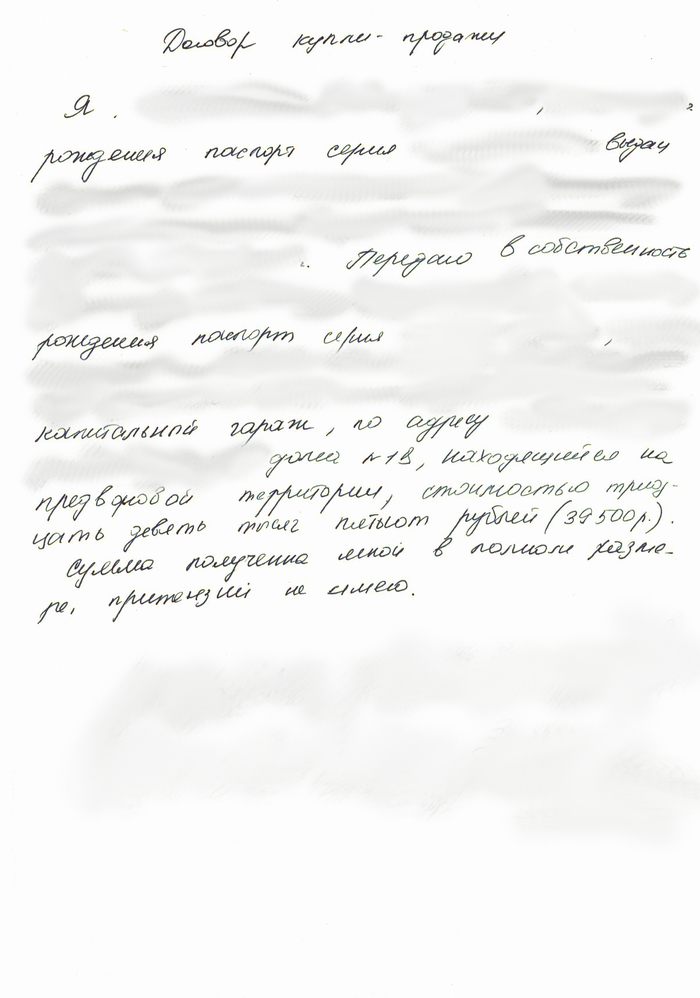 Договор купли-продажи
Я , г.
рождения паспорт серия выдан
г. Передаю в собственность
рождения паспорт серия ,
капитальный гараж, по адресу
дома №13, находящийся на
предворовой территории, стоимостью трид-
цать девять тысяч пятьсот рублей (39500р.).
Сумма полученна мной в полном разме-
ре, притензий не имею.